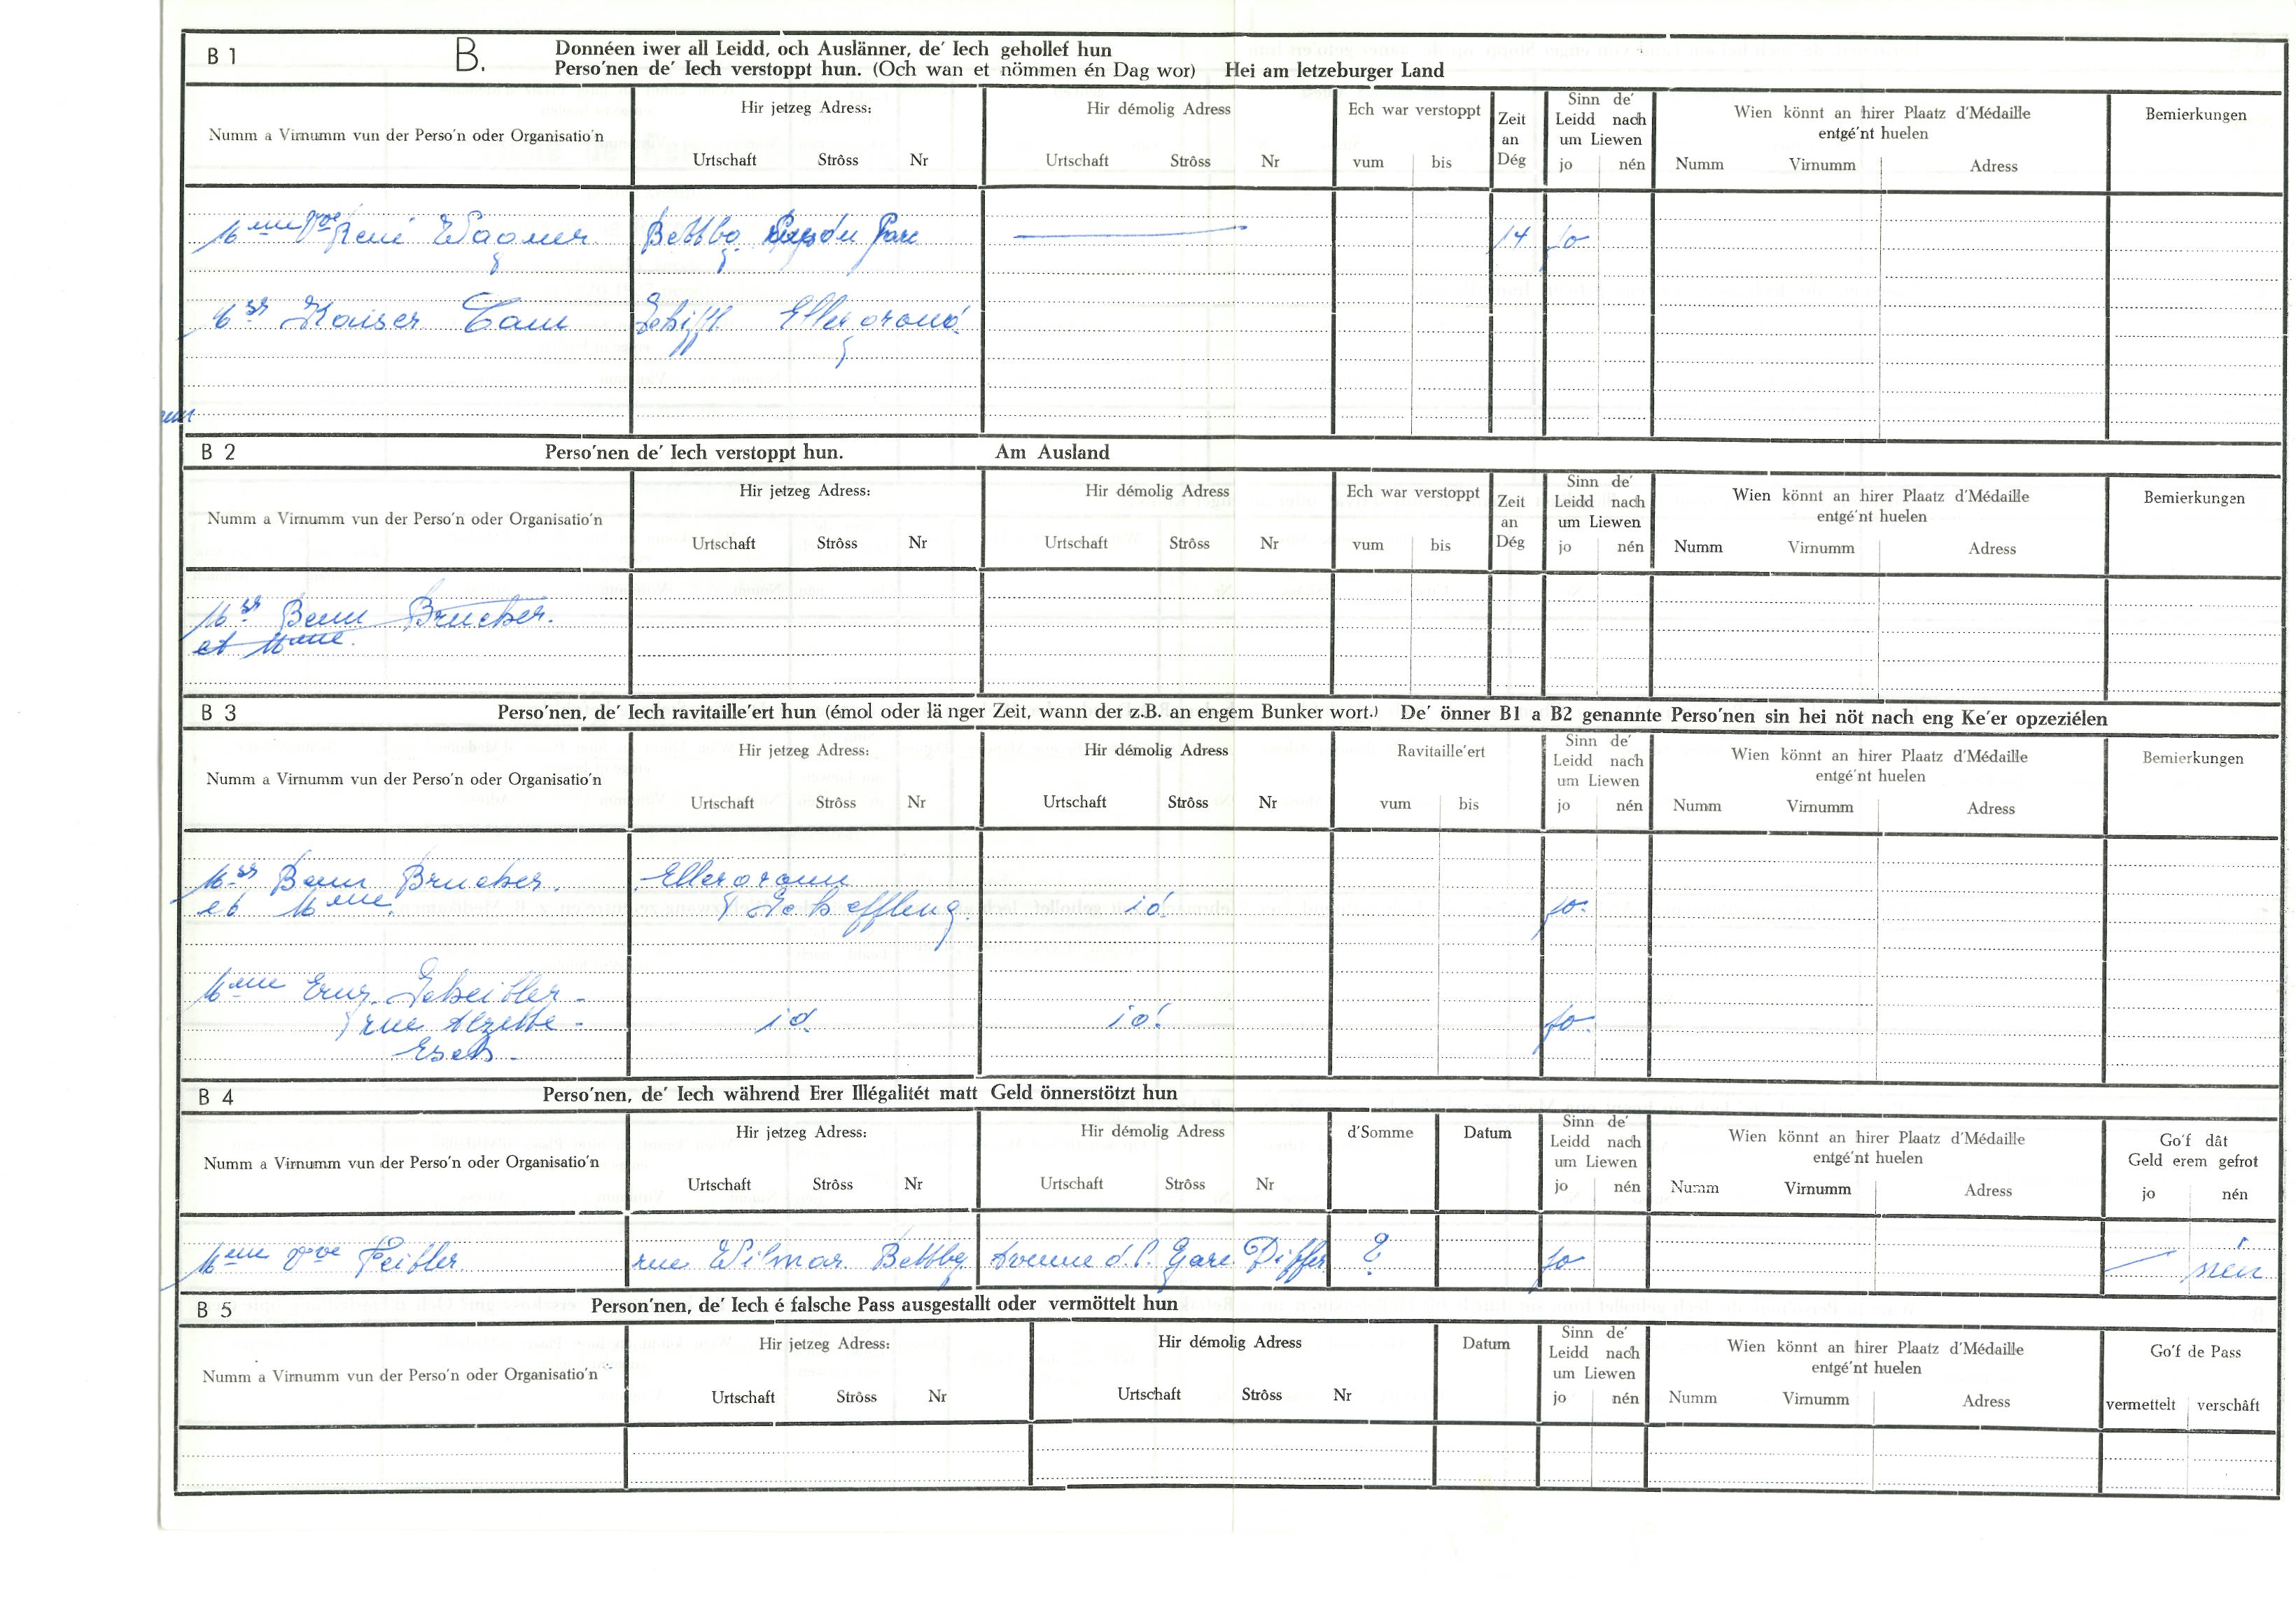 B 1 B. Donnéen iwer all Leidd, och Auslänner, de' Iech gehollef hun
Perso'nen de' Iech verstoppt hun. (Och wan et nömmen én Dag wor) Hei am letzeburger Land
Numm a Virnumm vun der Perso'n oder Organisatio'n
Hir jetzeg Adress:
Urtschaft Strôss Nr
Hir démolig Adress
Urtschaft Strôss Nr
Ech war verstoppt
vum bis
Zeit
an
Dég
Sinn de'
Leidd nach
um Liewen
jo nén
Wien könnt an hirer Plaatz d'Médaille
entgé'nt huelen
Numm Virnumm Adress
Bemierkungen
Mme Vve René Wagner Bettbg du Parc 14 jo
Mr Kaiser Cam Schiffl Ellergrond
B 2 Perso'nen de' Iech verstoppt hun. Am Ausland
Numm a Virnumm vun der Perso'n oder Organisatio'n
Hir jetzeg Adress:
Urtschaft Strôss Nr
Hir démolig Adress
Urtschaft Strôss Nr
Ech war verstoppt
vum bis
Zeit
an
Dég
Sinn de'
Leidd nach
um Liewen
jo nén
Wien könnt an hirer Plaatz d'Médaille
entgé'nt huelen
Numm Virnumm Adress
Bemierkungen
Mr Benn Brucher.
et Mme.
B 3 Perso'nen, de' Iech ravitaille'ert hun (émol oder lä nger Zeit, wann der z.B. an engem Bunker wort.) De' önner B1 a B2 genannte Perso'nen sin hei nöt nach eng Ke'er opzeziélen
Numm a Virnumm vun der Perso'n oder Organisatio'n
Hir jetzeg Adress:
Urtschaft Strôss Nr
Hir démolig Adress
Urtschaft Strôss Nr
Ravitaille'ert
vum bis
Sinn de'
Leidd nach
um Liewen
jo nén
Wien könnt an hirer Plaatz d'Médaille
entgé'nt huelen
Numm Virnumm Adress
Bemierkungen
Mr Benn Brucher. Ellergronn
et Mme. Scheffleng. id. jo.
Mme Eug. Scheitler -
rue Alzette - id. id. jo.
Esch -
B 4 Perso'nen, de' Iech während Erer Illégalitét matt Geld önnerstötzt hun
Numm a Virnumm vun der Perso'n oder Organisatio'n
Hir jetzeg Adress:
Urtschaft Strôss Nr
Hir démolig Adress
Urtschaft Strôss Nr
d'Somme
Datum
Sinn de'
Leidd nach
um Liewen
jo nén
Wien könnt an hirer Plaatz d'Médaille
entgé'nt huelen
Numm Virnumm Adress
Go'f dât
Geld erem gefrot
jo nén
Mme Vve Feitler. rue Wilmar. Bettbg Avenue d. l. Gare Differ ? jo nén
B 5 Person'nen, de' Iech é falsche Pass ausgestallt oder vermöttelt hun
Numm a Virnumm vun der Perso'n oder Organisatio'n
Hir jetzeg Adress:
Urtschaft Strôss Nr
Hir démolig Adress
Urtschaft Strôss Nr
Datum
Sinn de'
Leidd nach
um Liewen
jo nén
Wien könnt an hirer Plaatz d'Médaille
entgé'nt huelen
Numm Virnumm Adress
Go'f de Pass
vermettelt verschâft